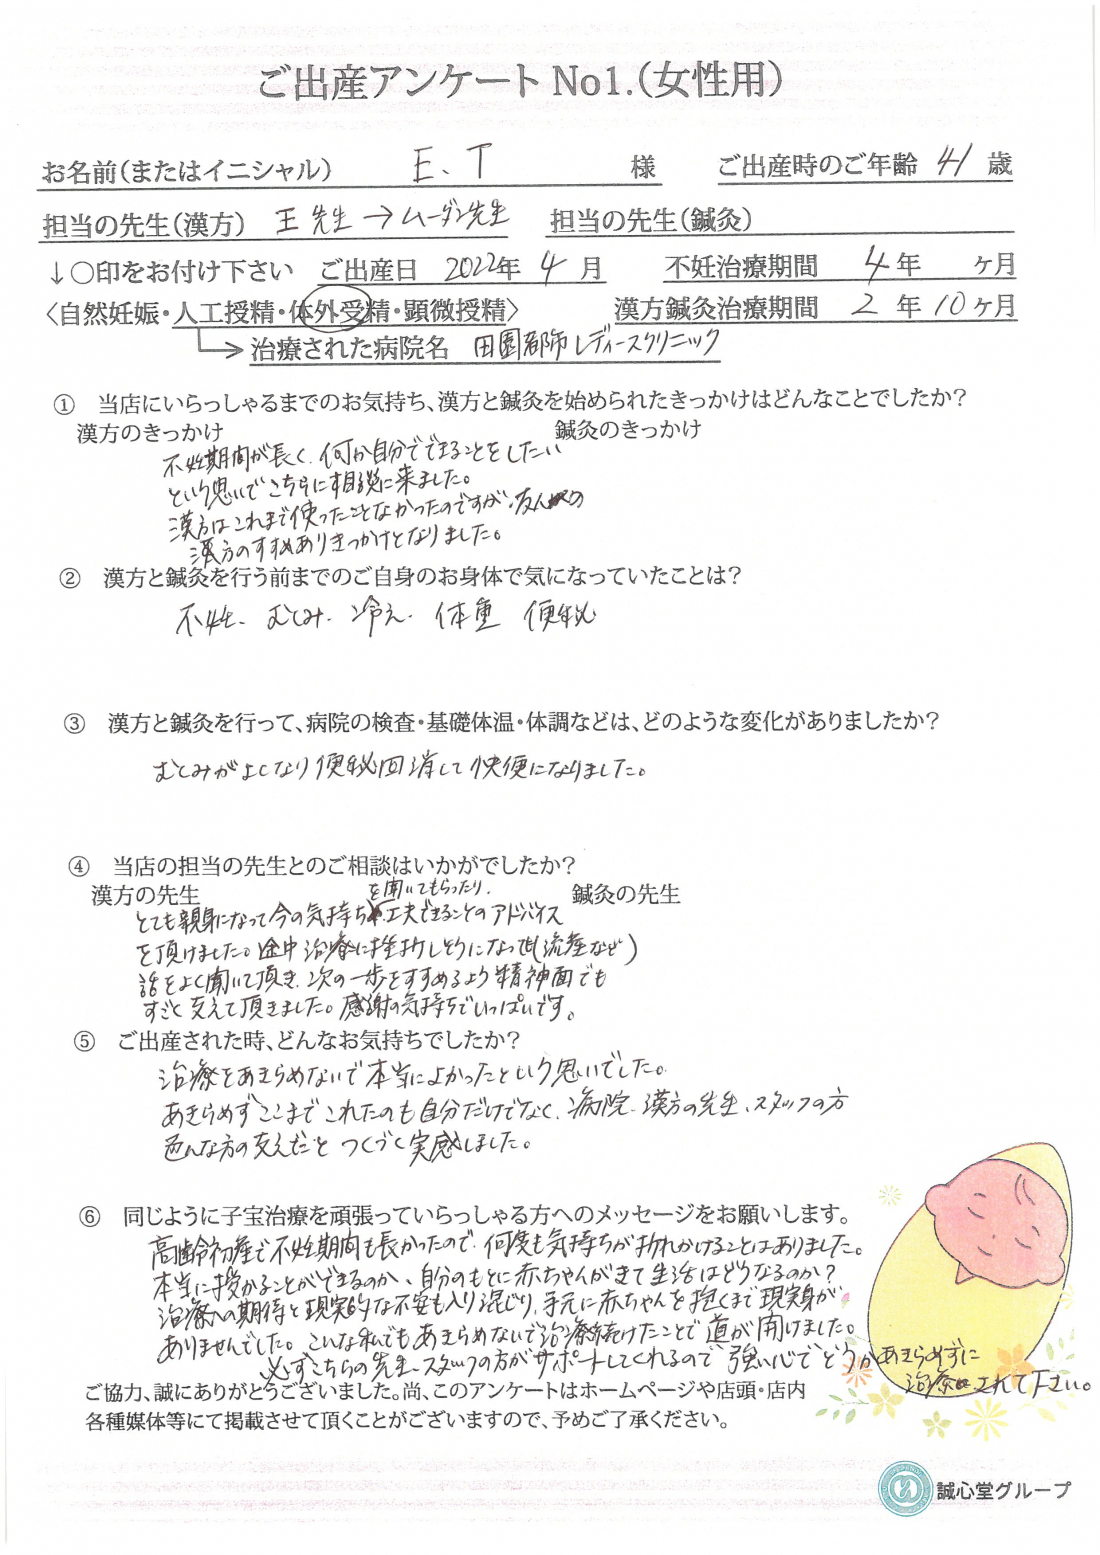 ご出産アンケート No1.(女性用)
お名前(またはイニシャル) E.T 様 ご出産時のご年齢 41 歳
担当の先生(漢方) 王先生→ムーダン先生 担当の先生(鍼灸)
↓○印をお付け下さい ご出産日 2022年 4月 不妊治療期間 4年 ヶ月
〈自然妊娠・人工授精・体外受精・顕微授精〉 漢方鍼灸治療期間 2年10ヶ月
治療された病院名 田園都市レディースクリニック
① 当店にいらっしゃるまでのお気持ち、漢方と鍼灸を始められたきっかけはどんなことでしたか?
漢方のきっかけ 鍼灸のきっかけ
不妊期間が長く、何か自分でできることをしたい
という思いでこちらに相談に来ました。
漢方はこれまで使ったことなかったのですが、友人の
漢方のすすめありきっかけとなりました。
② 漢方と鍼灸を行う前までのご自身のお身体で気になっていたことは?
不妊、むくみ、冷え、体重 便秘
③ 漢方と鍼灸を行って、病院の検査・基礎体温・体調などは、どのような変化がありましたか?
むくみがよくなり便秘回消して快便になりました。
④ 当店の担当の先生とのご相談はいかがでしたか?
漢方の先生 鍼灸の先生
を聞いてもらったり、
とても親身になって今の気持ち 工夫できることのアドバイス
を頂けました。途中治療に挫折しそうになっても(流産など)
話をよく聞いて頂き、次の一歩をすすめるよう精神面でも
すごく支えて頂きました。感謝の気持ちでいっぱいです。
⑤ ご出産された時、どんなお気持ちでしたか?
治療をあきらめないで本当によかったという思いでした。
あきらめずここまでこれたのも自分だけでなく、病院、漢方の先生、スタッフの方
色んな方の支えだと つくづく実感しました。
⑥ 同じように子宝治療を頑張っていらっしゃる方へのメッセージをお願いします。
高齢初産で不妊期間も長かったので、何度も気持ちが折れかけることはありました。
本当に授かることができるのか、自分のもとに赤ちゃんがきて生活はどうなるのか?
治療への期待と現実的な不安も入り混じり、手元に赤ちゃんを抱くまで現実身が
ありませんでした。こんな私でもあきらめないで治療続けたことで道が開けました。
必ずこちらの先生、スタッフの方がサポートしてくれるので強い心でどうかあきらめずに
治療されて下さい。
ご協力、誠にありがとうございました。尚、このアンケートはホームページや店頭・店内
各種媒体等にて掲載させて頂くことがございますので、予めご了承ください。
誠心堂グループ